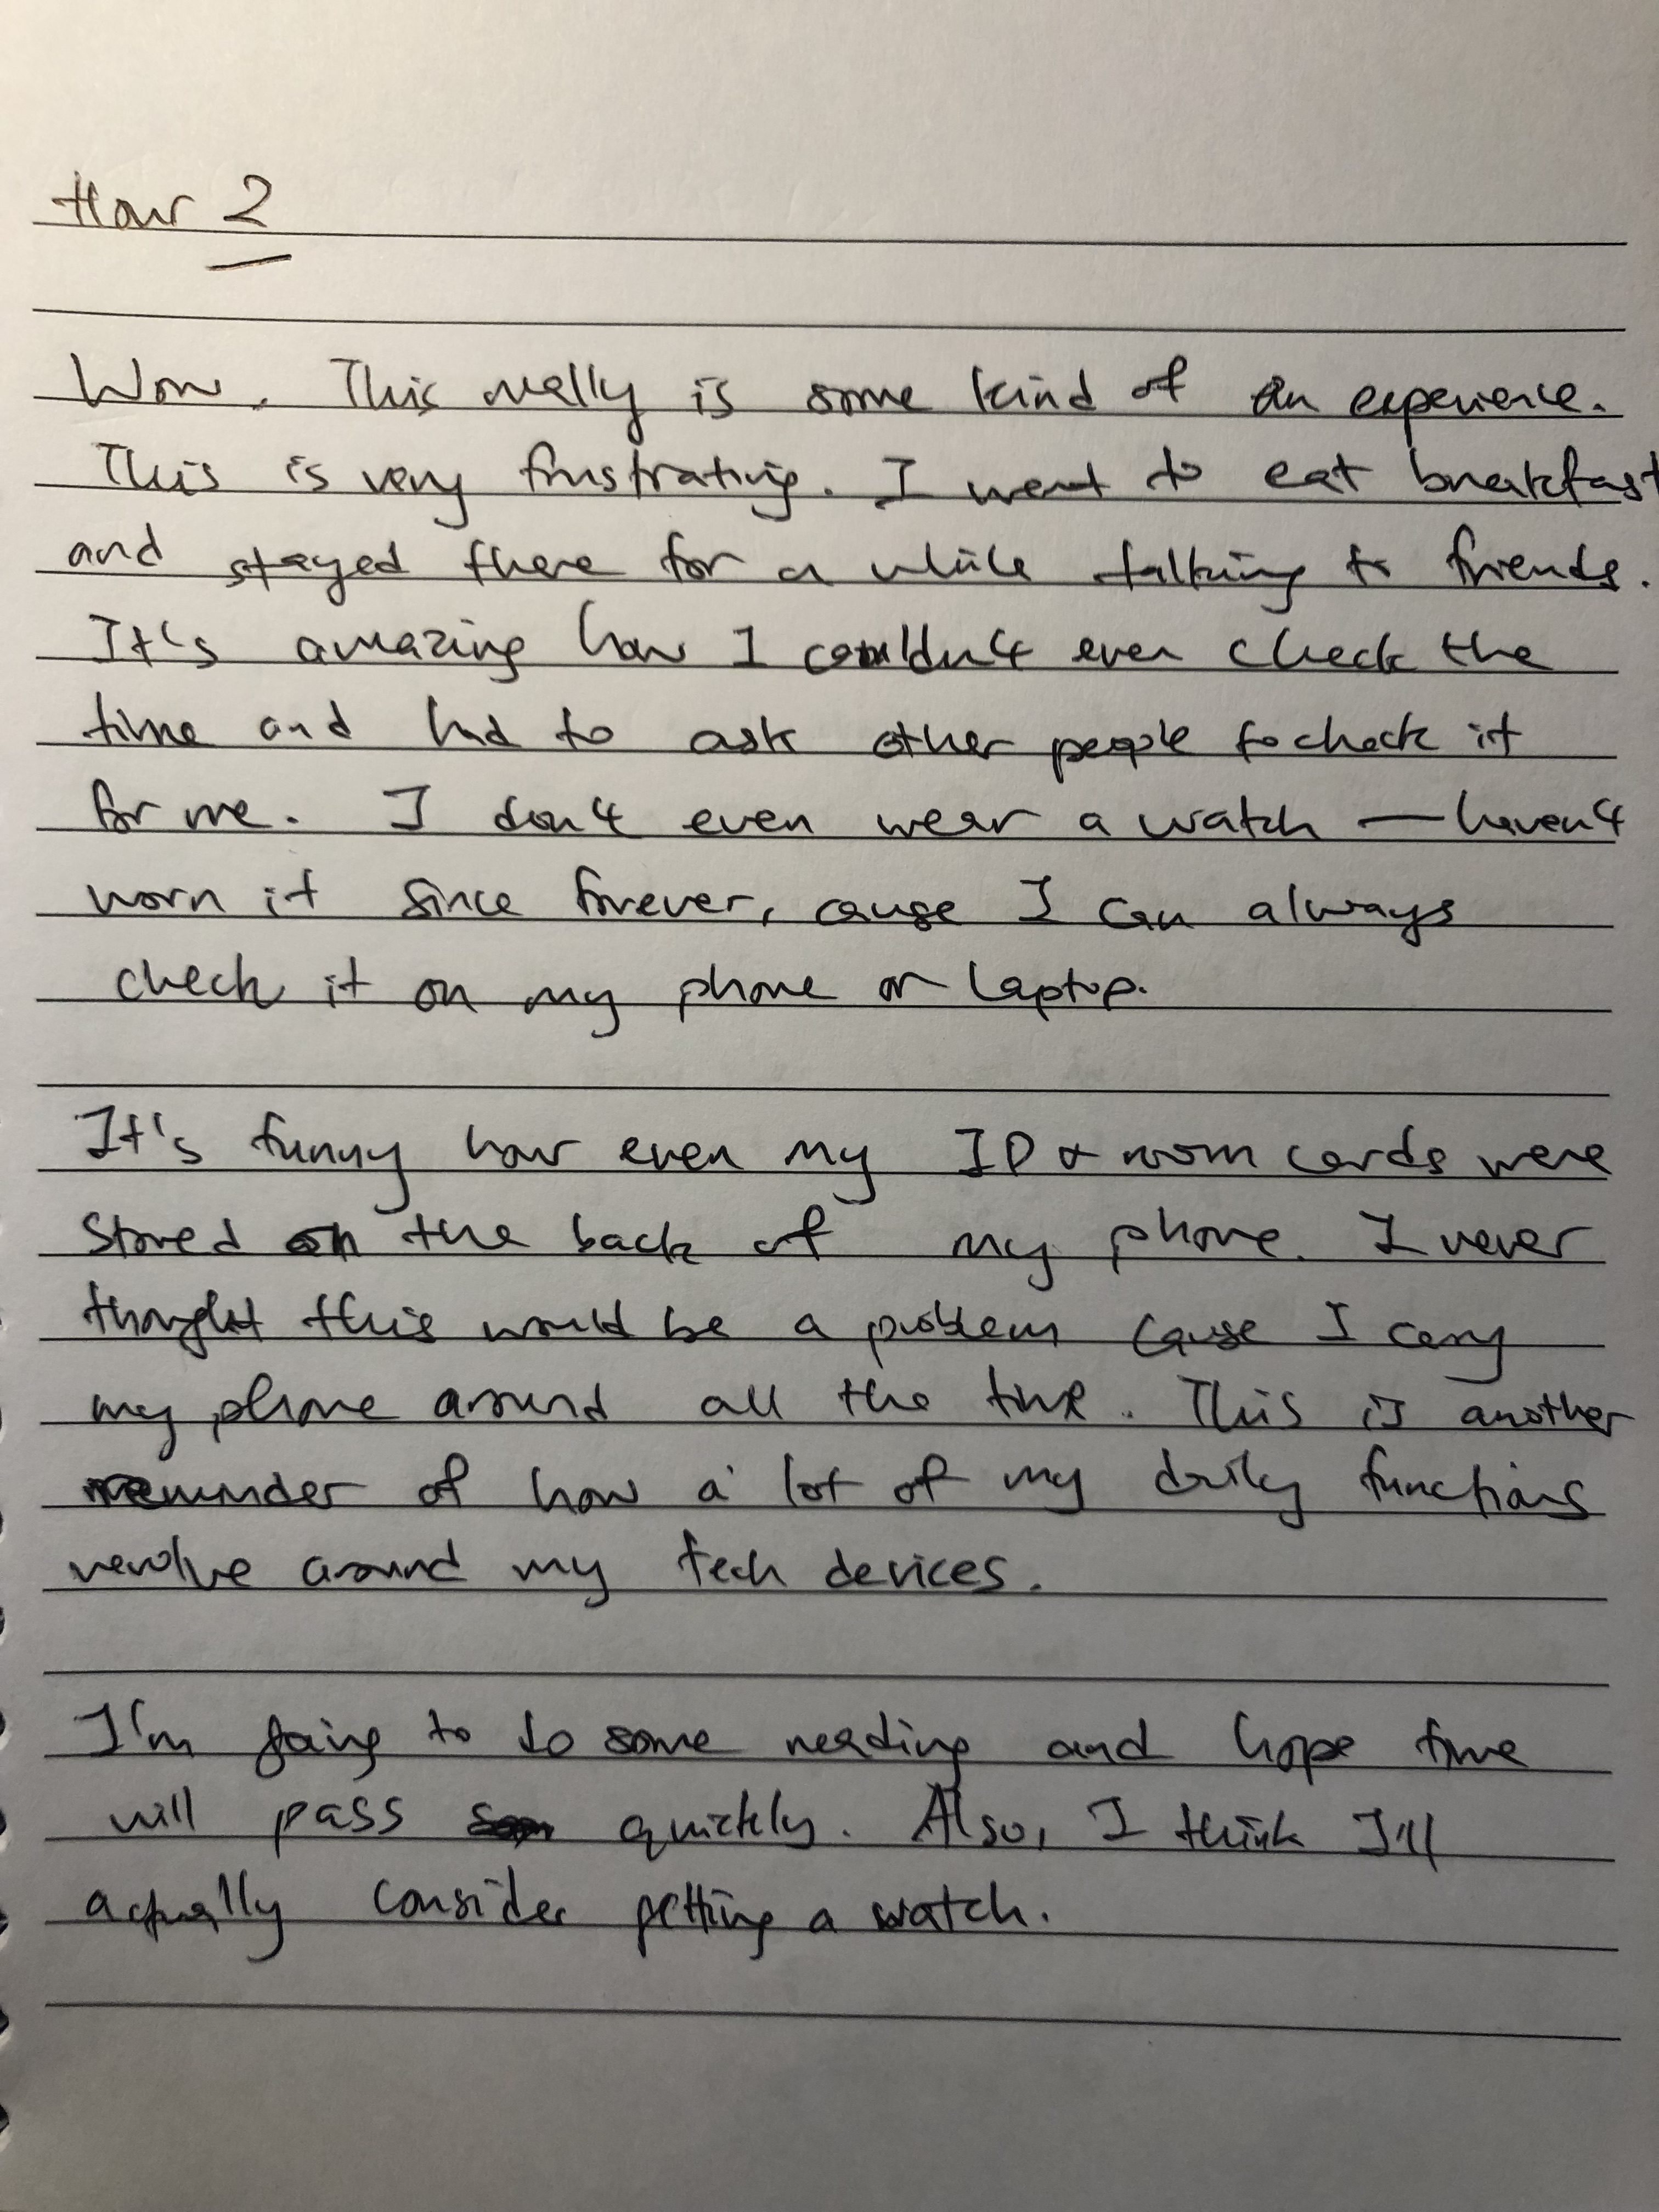 Hour 2
Wow. This really is some kind of an experience.
This is very frustrating. I went to eat breakfast
and stayed there for a while talking to friends.
It's amazing how I couldn't even check the
time and had to ask other people to check it
for me. I don't even wear a watch — haven't
worn it since forever, cause I can always
check it on my phone or laptop.
It's funny how even my ID & room cards were
stored on the back of my phone. I never
thought this would be a problem cause I carry
my phone around all the time. This is another
reminder of how a lot of my daily functions
revolve around my tech devices.
I'm going to do some reading and hope time
will pass quickly. Also, I think I'll
actually consider getting a watch.